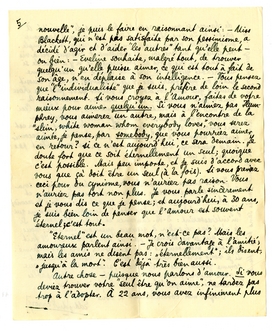 5.
nouvelle", je puis le faire en raisonnant ainsi: - Miss
Blackett, qui n'est pas satisfaite par son pessimisme, a
décidé d'agir et d'aider les autres tant qu'elle peut
- on bien: - Eveline souhaite, malgré tout, de trouver
quelqu'un qu'elle puisse aimer, ce qui est tout à fait de
son âge, n'en déplaise à son intelligence - Tous pensez
que l'individualiste que je suis, préfère de loin le second
raisonnement. Si vous croyez à l'amour, faites de votre
mieux pour aimer quelqu'un. Si vous n'aimez pas Hum-
phrey, vous aimerez un autre, mais à l'encontre de la
"slim, white woman whom everybody loves", vous serez
aimée, je pense, par somebody, que vous pourriez aimer,
en retour? Si ce n'est aujourd'hui, ce sera demain. Je
doute fort que ce soit éternellement un seul; quoique
c'est possible. Mais peu importe, et je suis d'accord avec
vous que ça doit être un seul (à la fois). Si vous prenez
ceci pour du cynisme, vous n'aurez pas raison. Vous
n'aurez pas tort non plus. Je vous parle sincèrement
et je vous dis ce que je pense; et aujourd'hui, à 30 ans,
je suis bien loin de penser que l'amour est souvent
éternel; c'est tout.
"Éternel" est un beau mot, n'est-ce pas? Mais les
amoureux parlent ainsi - Je crois davantage à l'amitié,
mais les amis ne disent pas: "éternellement"; ils disent,
"jusqu'à la mort". C'est déjà très bien aussi.
Autre chose - puisque nous parlons d'amour. Si vous
deviez trouver votre seul être qu'on aime, ne tardez pas
trop à l'adopter. A 22 ans, vous avez infiniment plus